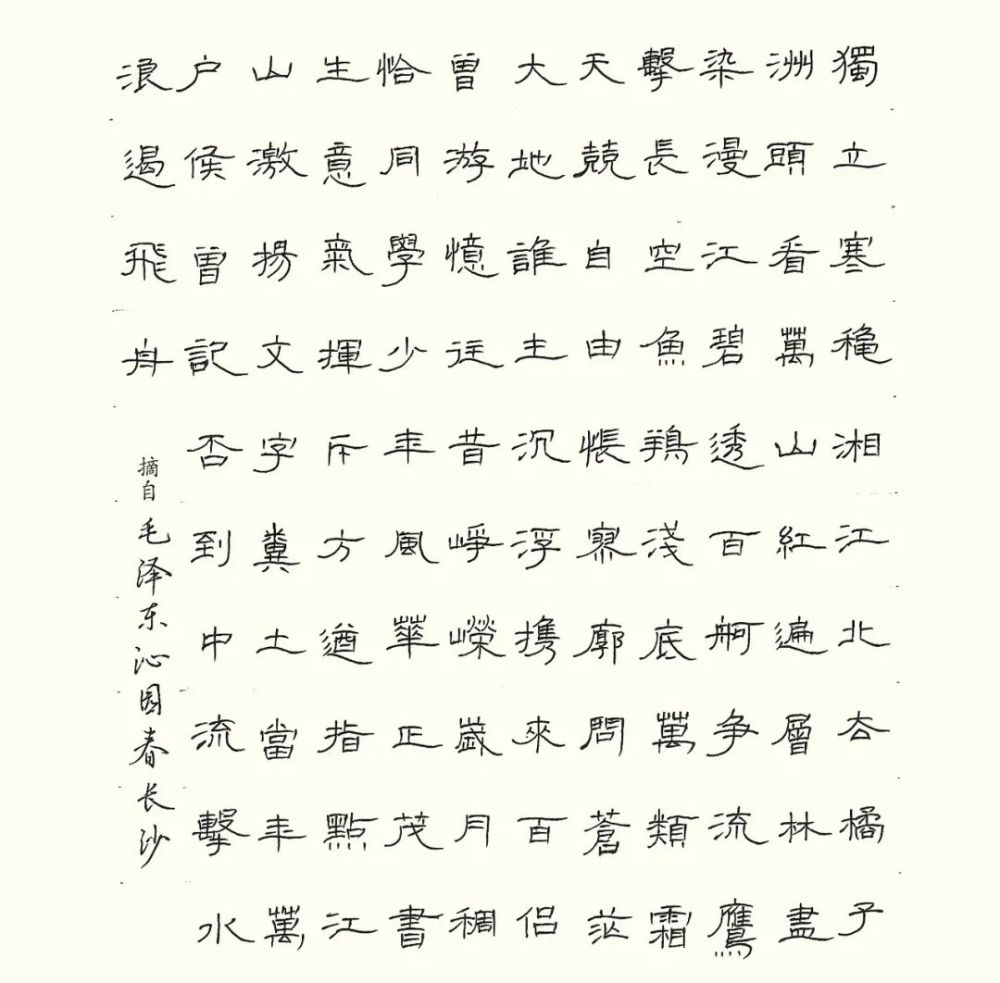 獨立寒穐湘江北去橘子
洲頭看萬山紅遍層林盡
染漫江碧透百舸争流鷹
擊長空魚鴹淺底萬類霜
天競自由悵寥廓問蒼茫
大地誰主沉浮携來百侣
曾游憶往昔崢嶸歲月稠
恰同學少年風華正茂書
生意氣揮斥方遒指點江
山激揚文字糞土當年萬
户侯曾記否到中流擊水
浪遏飛舟
摘自毛泽东沁园春长沙